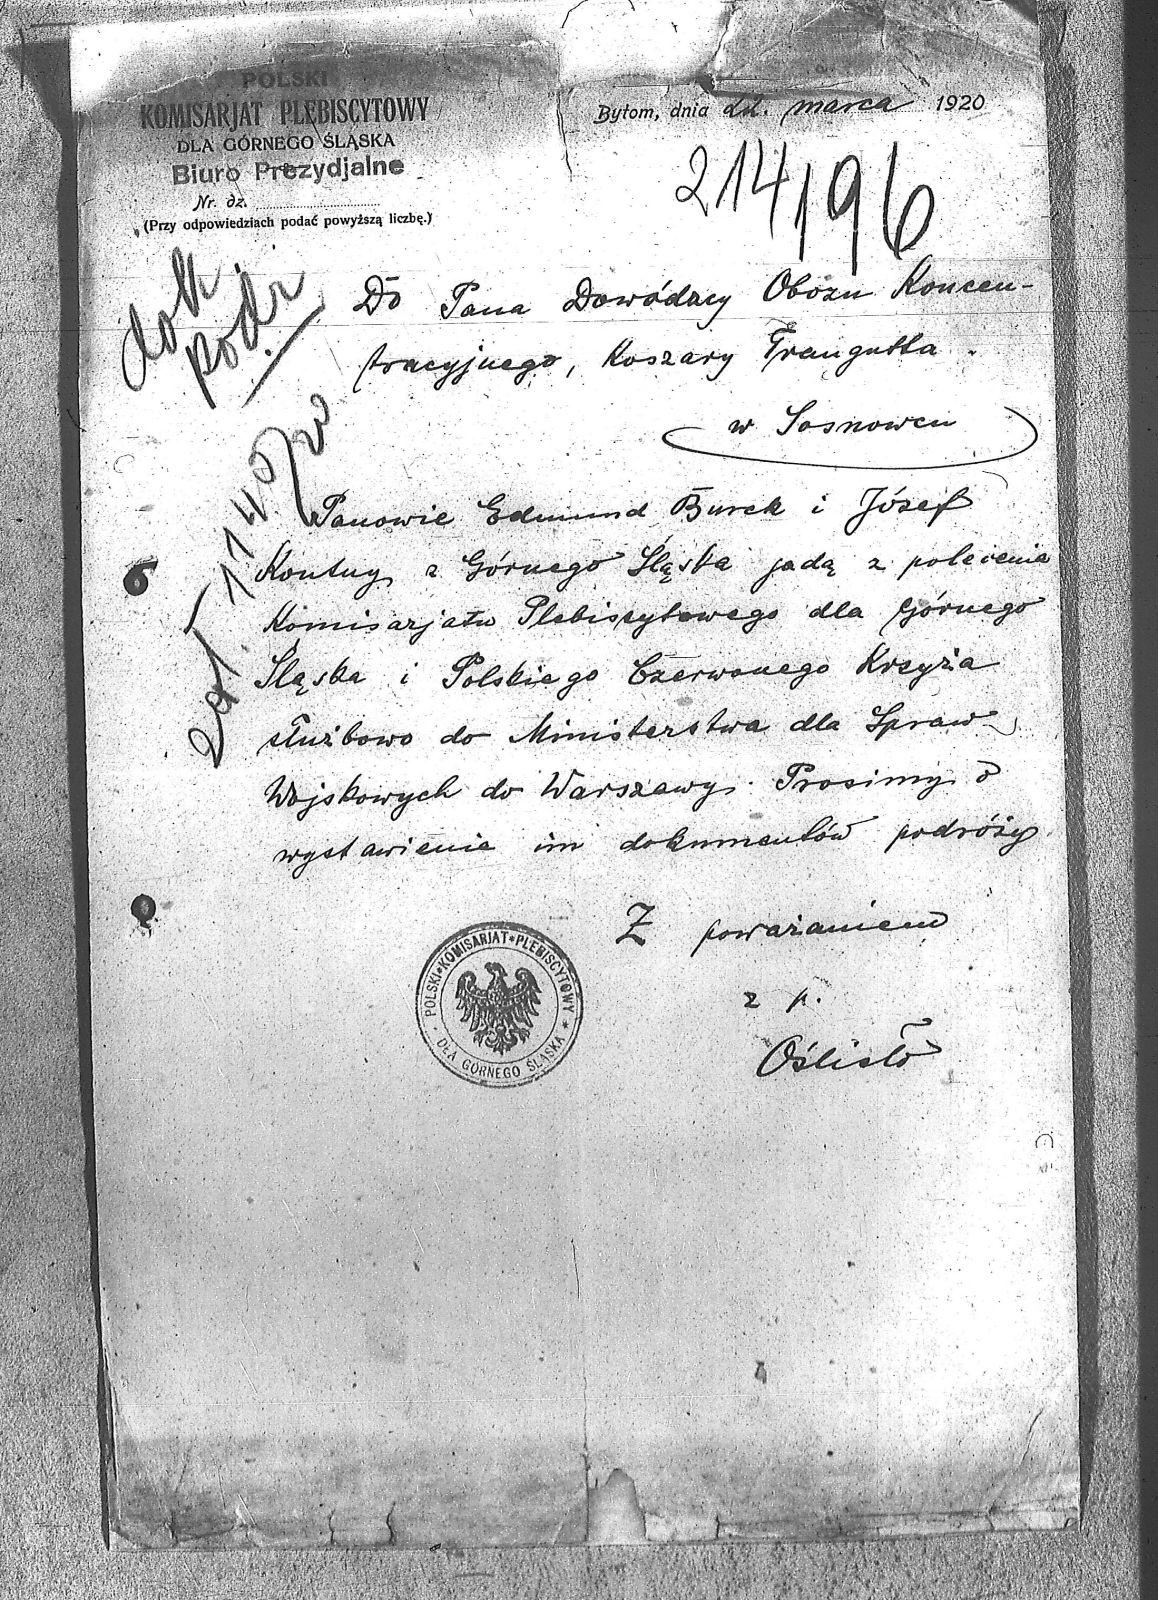 POLSKI
KOMISARJAT PLEBISCYTOWY
DLA GÓRNEGO ŚLĄSKA
Biuro Prezydjalne
Nr. dz.
(Przy odpowiedziach podać powyższą liczbę.)
Bytom, dnia 22. marca 1920
214196
dok
podr
Do Pana Dowódacy Obozu Koncen-
tracyjnego, Koszary Traugutta.
w Sosnowcu
Panowie Edmund Burek i Józef
Kontny z Górnego Śląska jadą z polecenia
Komisarjatu Plebiscytowego dla Górnego
Śląska i Polskiego Czerwonego Krzyża
służbowo do Ministerstwa dla Spraw
Wojskowych do Warszawy. Prosimy o
wystawienie im dokumentów podróży
Z poważaniem
z p.
Oślisło
POLSKI KOMISARJAT PLEBISCYTOWY
DLA GÓRNEGO ŚLĄSKA